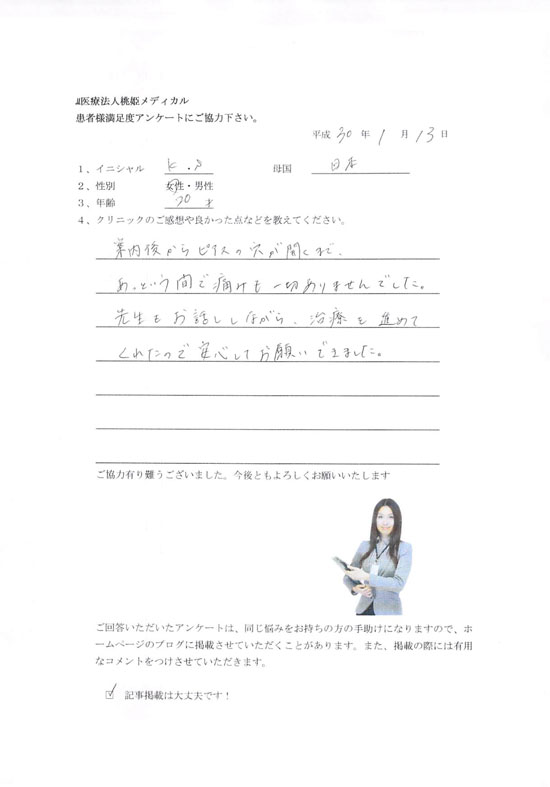 医療法人桃姫メディカル
患者様満足度アンケートにご協力下さい。
平成 30 年 1 月 13 日
1、イニシャル K.S 母国 日本
2、性別 女性・男性
3、年齢 20 才
4、クリニックのご感想や良かった点などを教えてください。
案内後からピアスの穴が開くまで、
あっという間で痛みも一切ありませんでした。
先生もお話ししながら、治療を進めて
くれたので安心してお願いできました。
ご協力有り難うございました。今後ともよろしくお願いいたします
ご回答いただいたアンケートは、同じ悩みをお持ちの方の手助けになりますので、ホ
ームページのブログに掲載させていただくことがあります。また、掲載の際には有用
なコメントをつけさせていただきます。
☑ 記事掲載は大丈夫です！